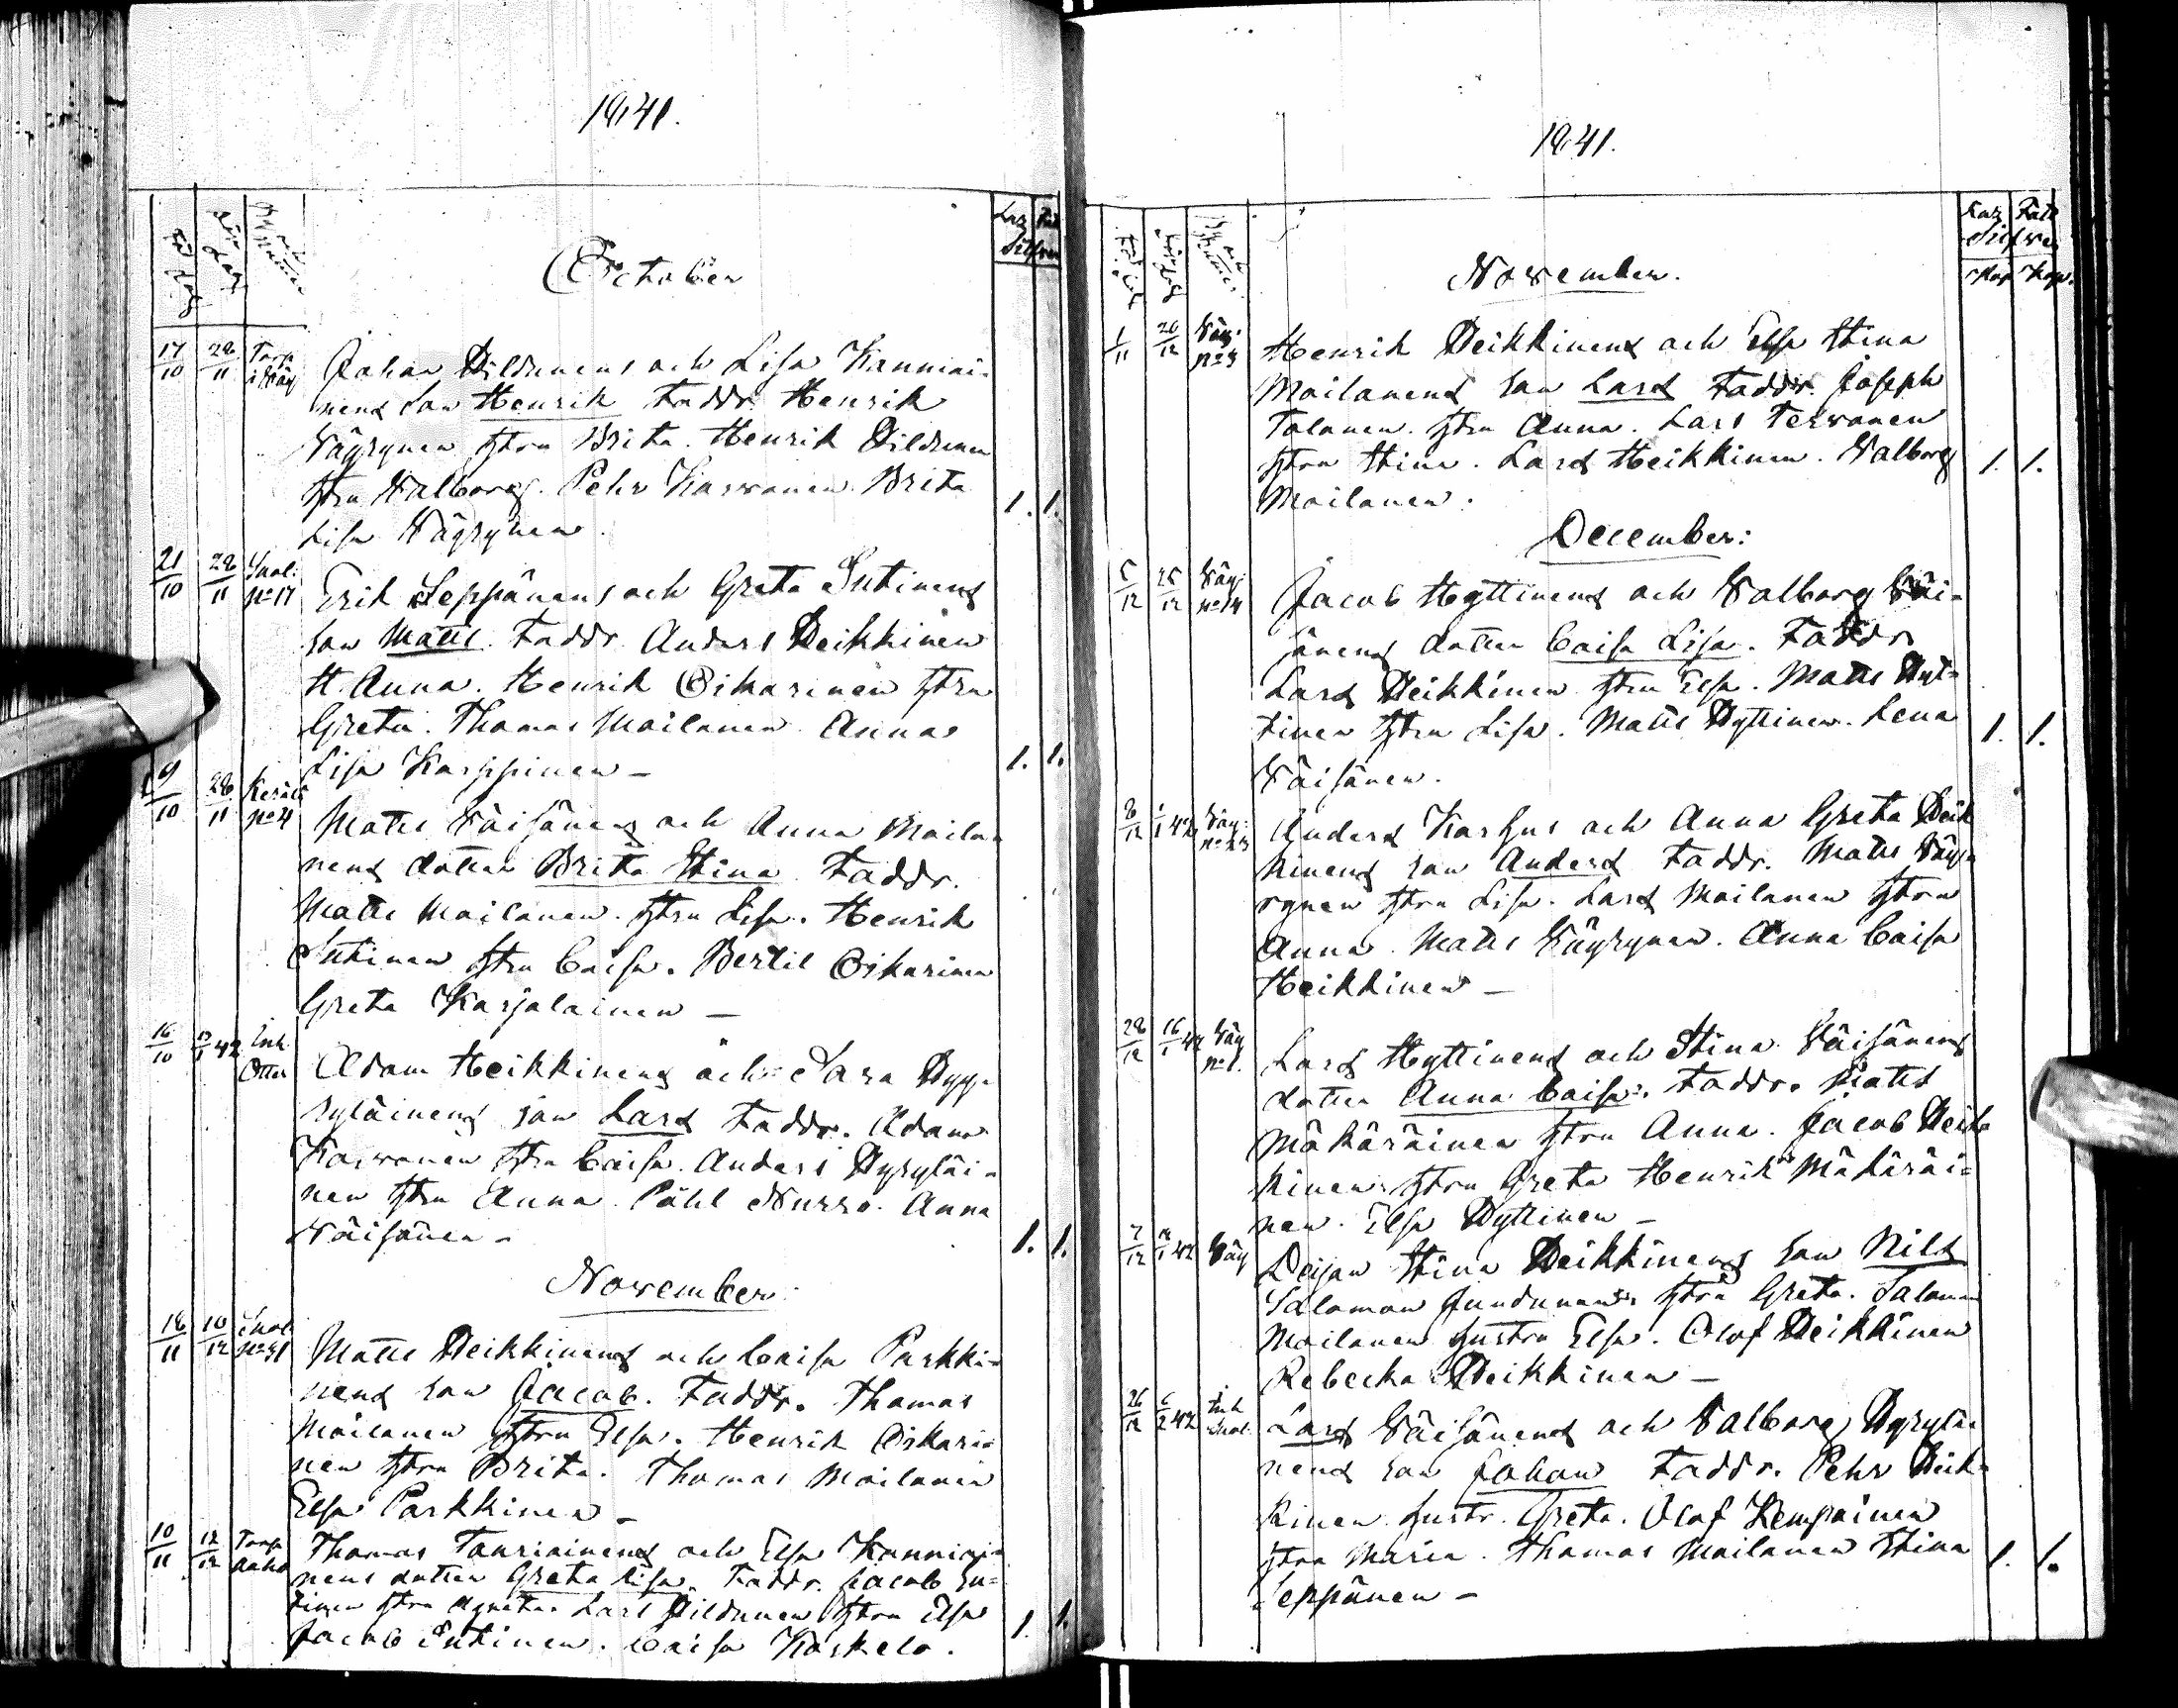 1841.
October
Kap Fatt
Silfver
17/10 28/11 Torp i Väy Johan Hildunens och Lisa Kanniai-
nens son Henrik Faddr Henrik
Väyrynen hstru Brita. Henrik Hildunen
hstru Valborg. Pehr Karvonen Brita
Lisa Väyrynen. 1. 1.
21/10 28/11 Suol: No 17 Erik Seppänens och Greta Sutinens
son Matts. Faddr Anders Heikkinen
H. Anna. Henrik Oikarinen hstru
Greta. Thomas Moilanen Anna
Lisa Karppinen – 1. 1.
9/10 28/11 No 4 Matts Väisänens och Anna Moila-
nens dotter Brita Stina Faddr.
Matts Moilanen. hstru Lisa. Henrik
Sutinen hstru Caisa. Bertil Oikarinen
Greta Karjalainen –
16/10 42 Inh. Adam Heikkinens och Sara Hyy-
ryläinens son Lars Faddr. Adam
Karvonen hstru Caisa. Anders Hyryläi-
nen hstru Anna. Påhl Nurro. Anna
Väisänen – 1. 1.
November.
18/11 10/12 Suol Matts Heikkinens och Caisa Parkki-
nens son Jacob. Faddr. Thomas
Moilanen hstru Elsa. Henrik Oikari-
nen hstru Brita. Thomas Moilanen
Elsa Parkkinen –
10/11 12/12 Torp Thomas Tauriainens och Elsa Kanniai-
nens dotter Greta Lisa. Faddr. Jacob Su-
tinen hstru Agneta. Lars Hildunen hstru Elsa
Jacob Sutinen. Caisa Koskelo. 1. 1.
1841.
November.
Kap Fatt
Silfver
Kop Kop.
1/11 26/12 Väy: No 3 Henrik Heikkinens och Elsa Stina
Moilanens son Lars Faddr. Joseph
Tolonen. hstru Anna. Lars Tervonen
hstru Stina. Lars Heikkinen. Valborg 1. 1.
Moilanen.
December:
5/12 25/12 Väy: No 14 Jacob Hyttinens och Valborg Väi-
sänens dotter Caisa Lisa. Faddr
Lars Heikkinen hstru Elsa. Matts Hyt-
tinen hstru Lisa. Matts Hyttinen. Lena 1. 1.
Väisänen.
8/12 1/1 42 Väy: Anders Karhus och Anna Greta Heik
kinens son Anders Faddr. Matts Väy-
rynen hstru Lisa. Lars Moilanen hstru
Anna. Matts Väyrynen. Anna Caisa
Heikkinen –
28/12 16/1 42 Väy No 1. Lars Hyttinens och Stina Väisänens
dotter Anna Caisa. Faddr. Matts
Mäkäräinen hstru Anna. Jacob Heik
kinen hstru Greta Henrik Mäkäräi-
nen. Elsa Hyttinen –
7/12 42 Väy Peigan Stina Heikkinens son Nils
Salomon Jundunen hstru Greta. Salomon
Moilanen hustru Elsa. Olof Heikkinen
Rebecka Heikkinen –
26/12 6/2 42 Inh Suol. Lars Väisänens och Valborg Hyryläi
nens son Johan Faddr. Pehr Heik-
kinen hustr. Greta. Olof Kempainen
hstru Maria. Thomas Moilanen Stina 1. 1.
Seppänen –